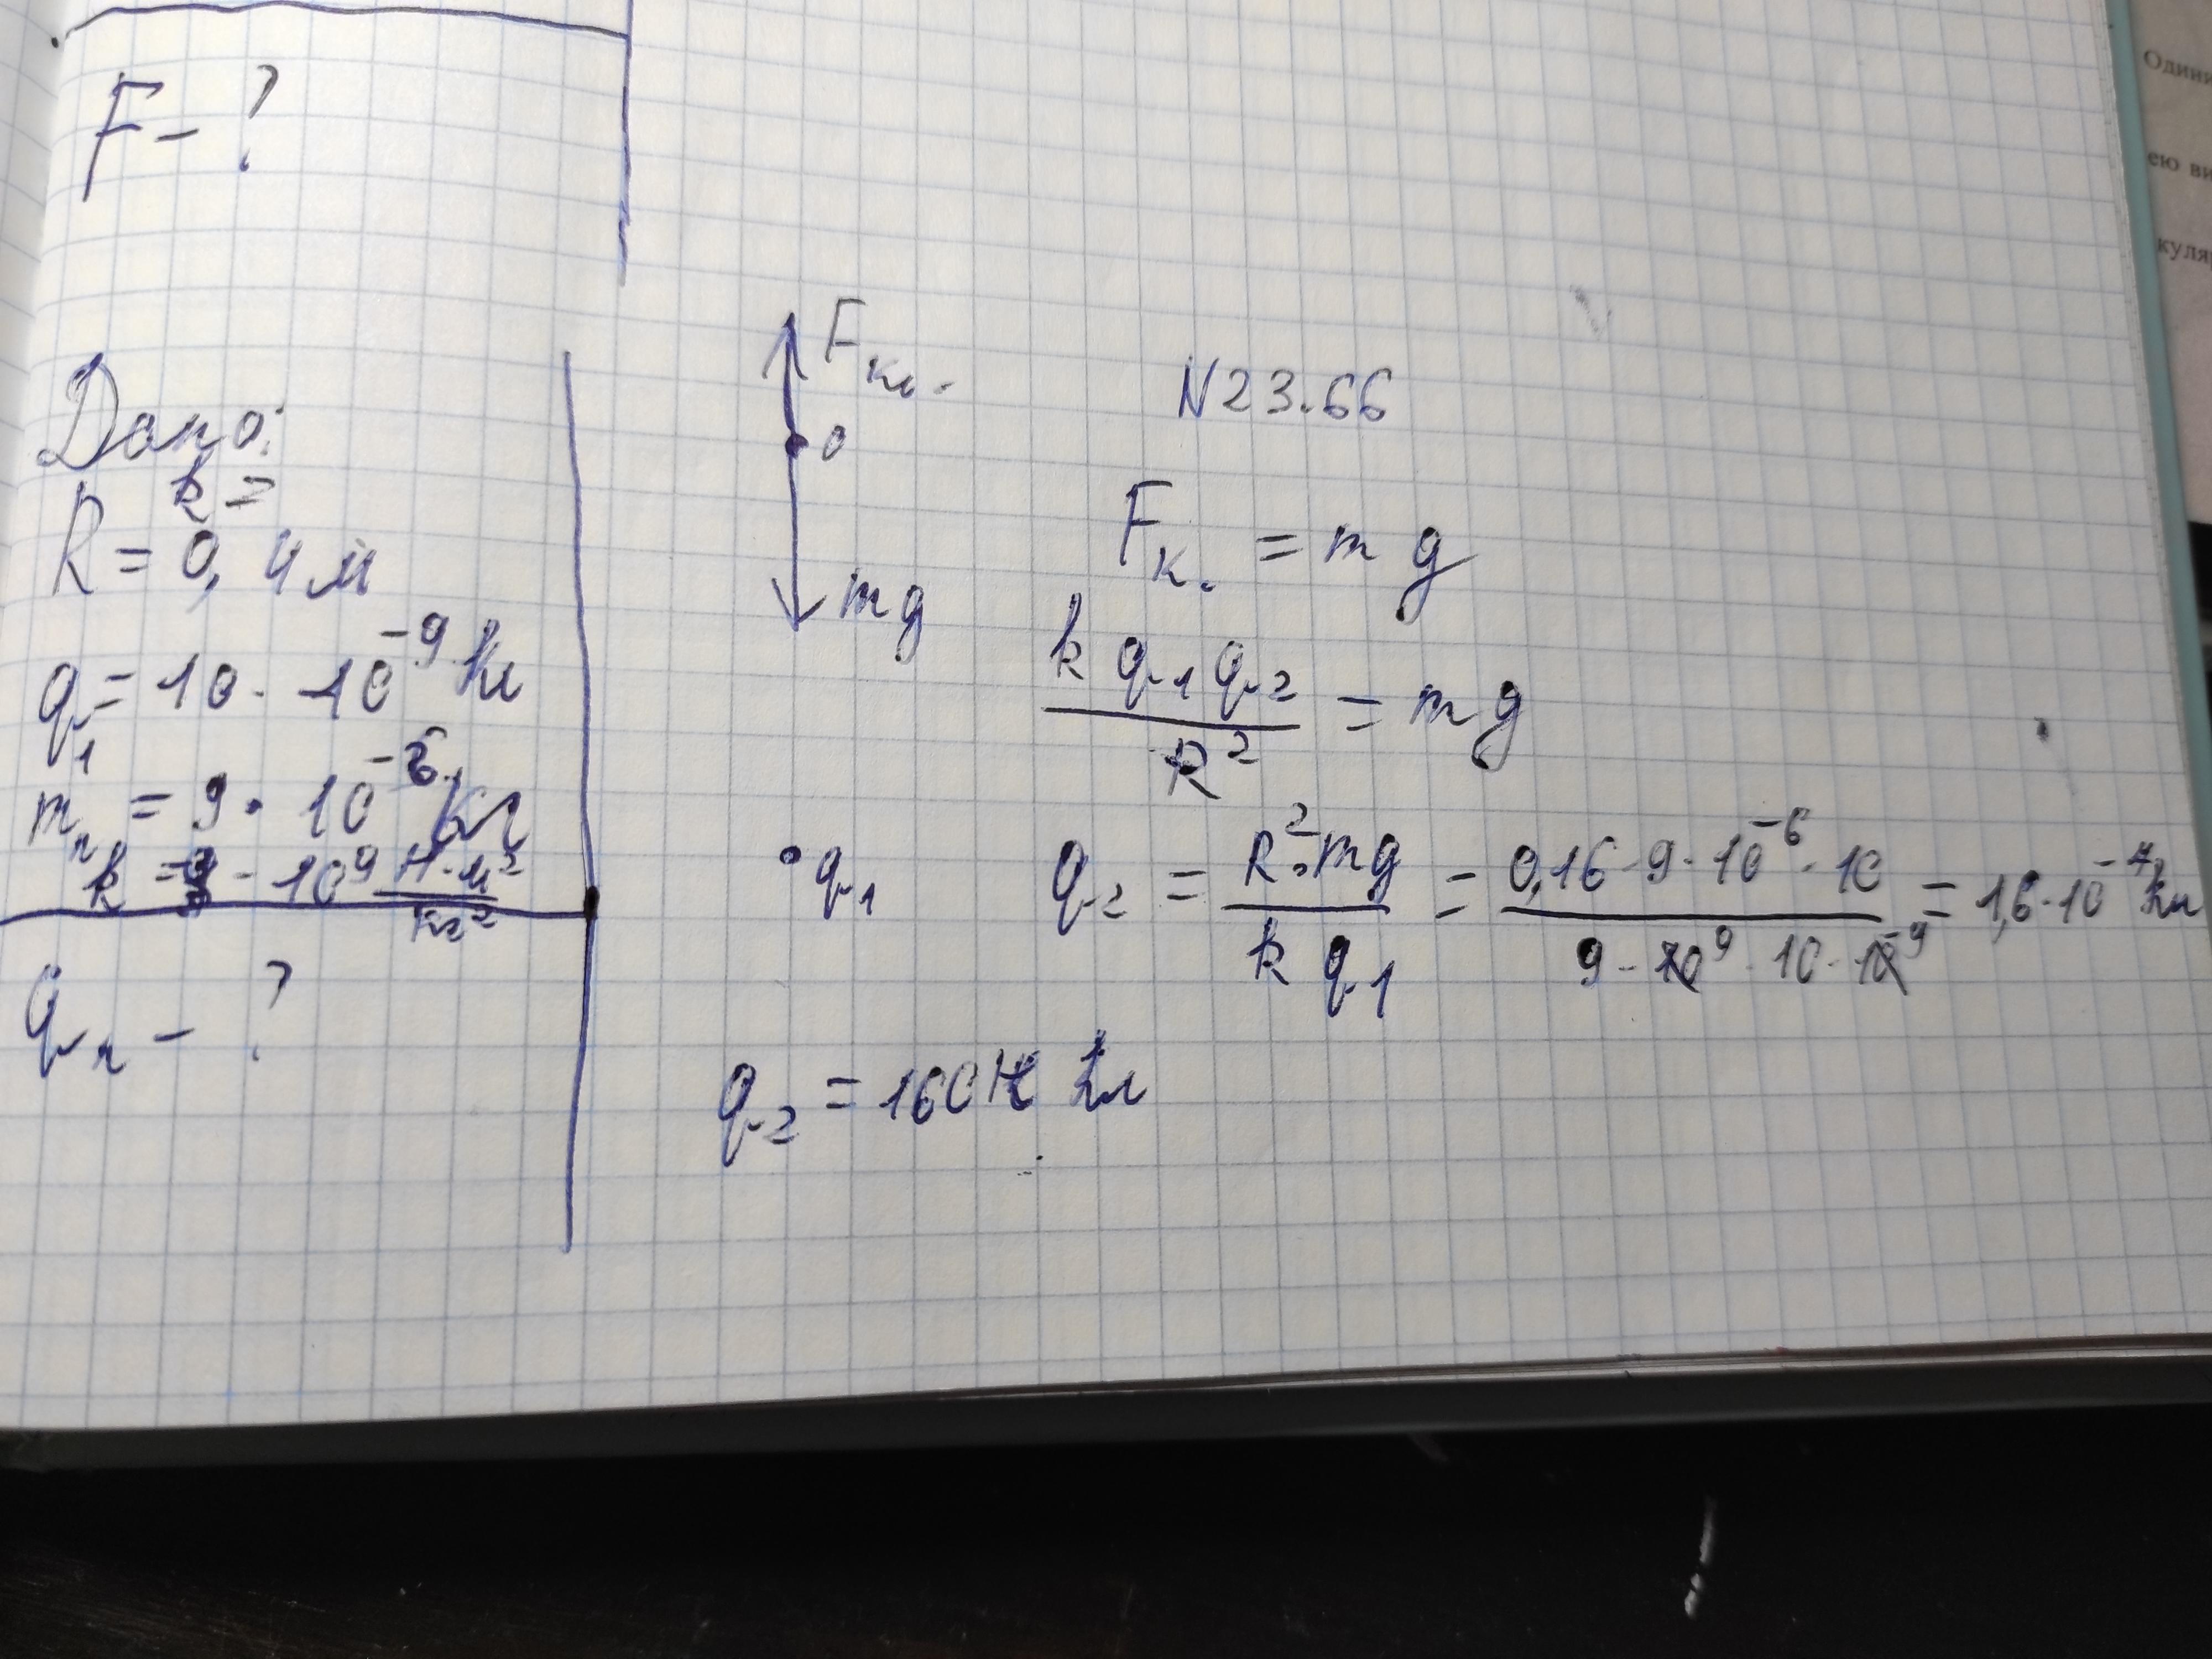 F - ?
Дано:
k =
R = 0,4 м
q₁ = 10 · 10⁻⁹ Кл
mₙ = 9 · 10⁻⁶ Кг
k = 9 · 10⁹ Н·м²/кг²
qₙ - ?
Fкл.
0
mg
q₁
N23.66
Fк. = mg
k q₁ q₂ / R² = mg
q₂ = R²·mg / k q₁ = 0,16 · 9 · 10⁻⁶ · 10 / 9 · 10⁹ · 10 · 10⁻⁹ = 1,6 · 10⁻⁷ Кл
q₂ = 160 н Кл
Один
ею ви
куля